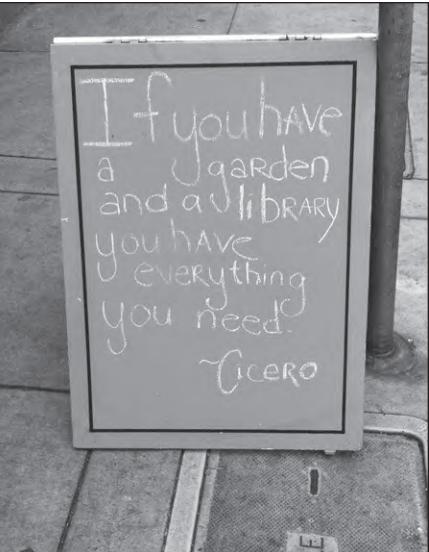 If you hAVE
a garden
and a libRARY
you hAVE
everything
you need.
~Cicero